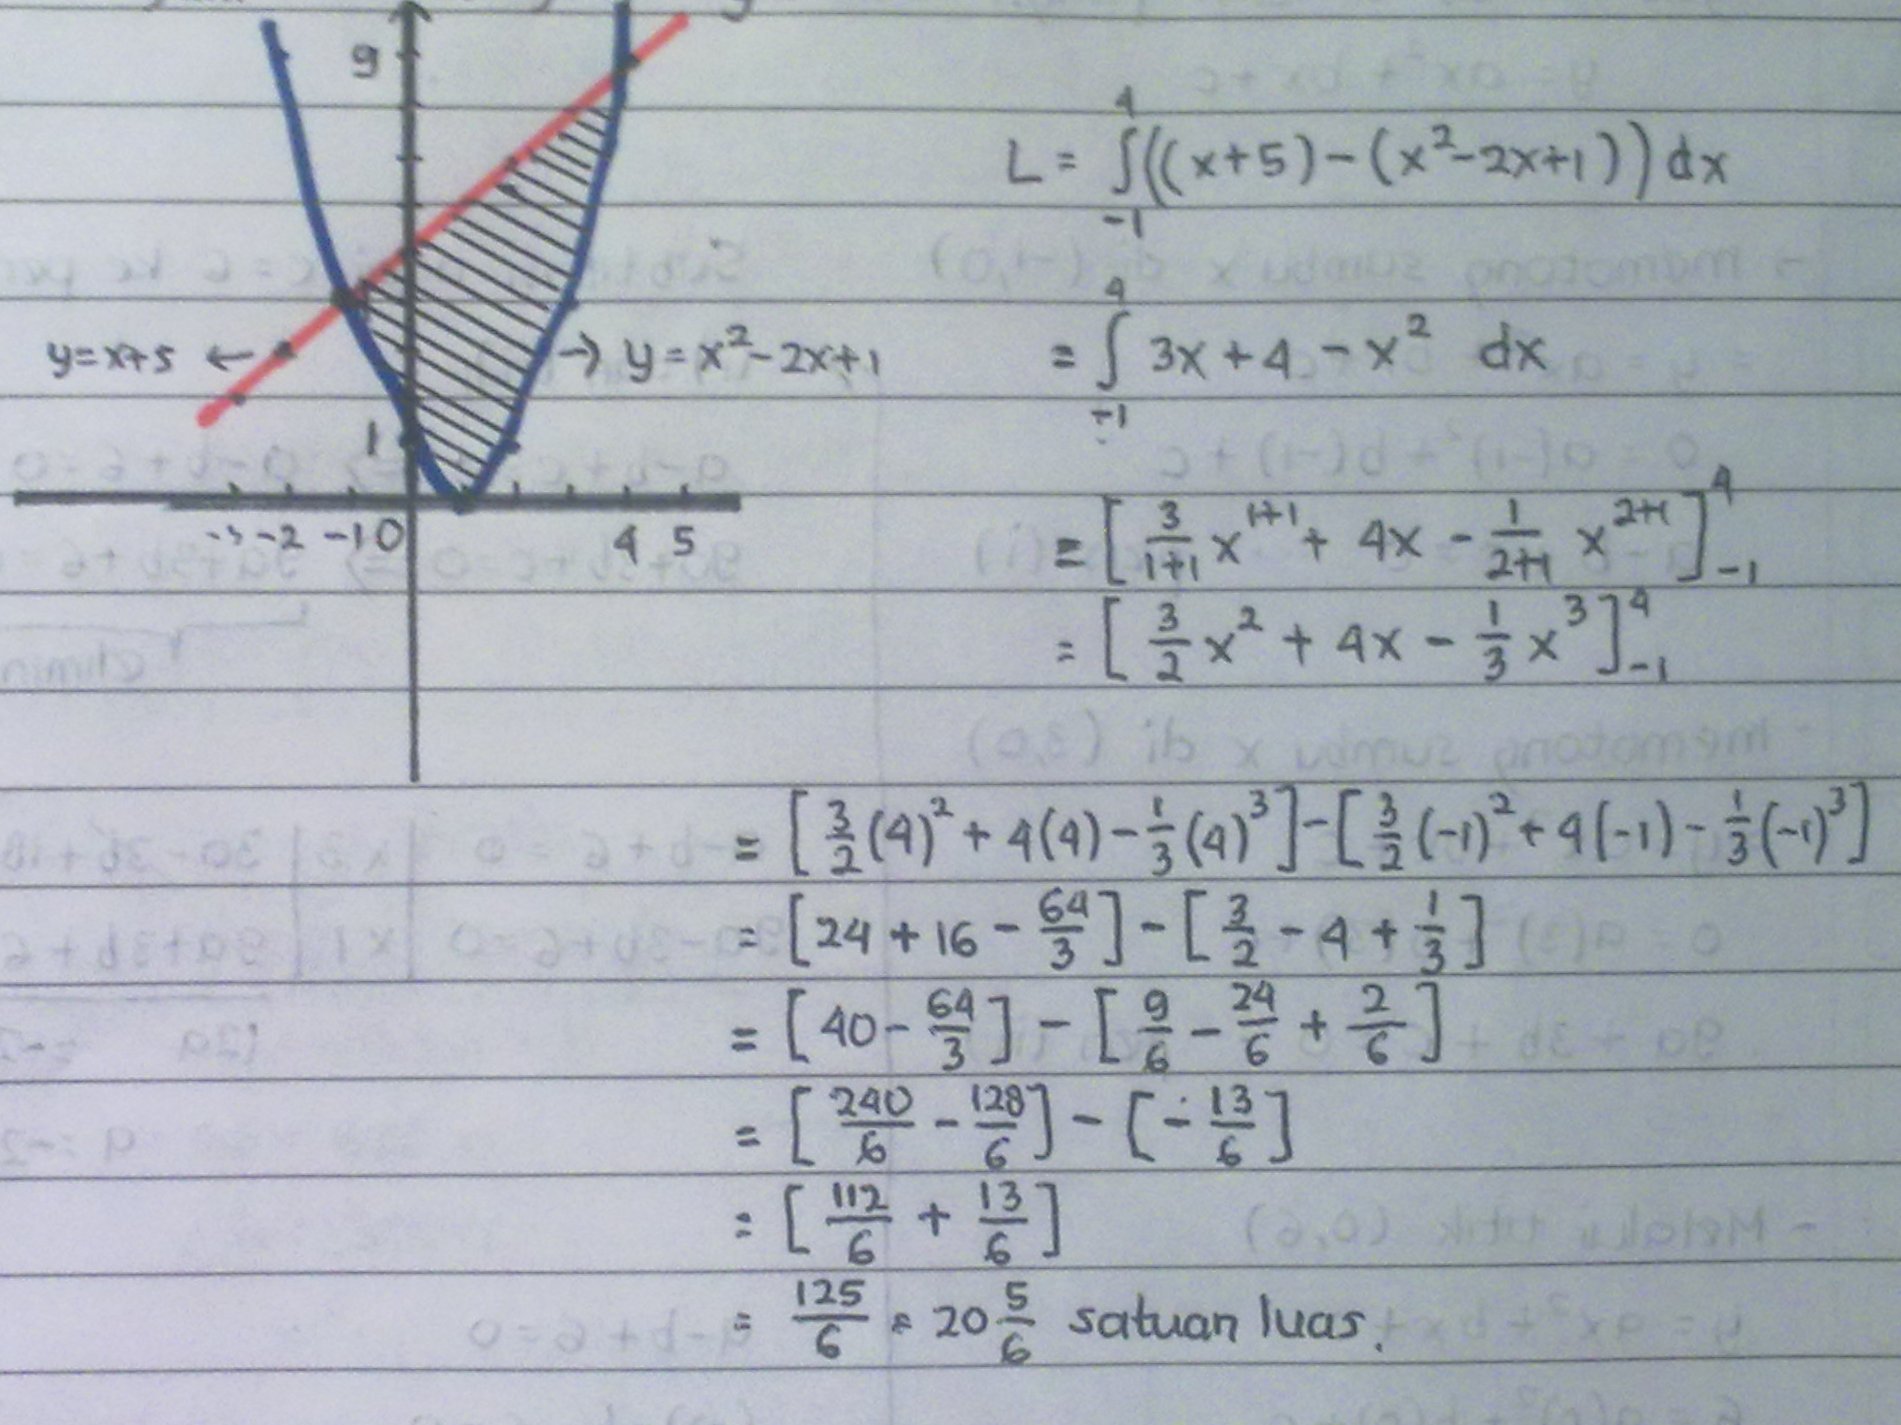 9
L = ∫₋₁⁴ ((x+5) - (x²-2x+1)) dx
y = x+5 ← → y = x²-2x+1
= ∫₋₁⁴ 3x + 4 - x² dx
1
-2 -1 0 4 5
= [3/(1+1) x¹⁺¹ + 4x - 1/(2+1) x²⁺¹]₋₁⁴
= [3/2 x² + 4x - 1/3 x³]₋₁⁴
= [3/2 (4)² + 4(4) - 1/3 (4)³] - [3/2 (-1)² + 4(-1) - 1/3 (-1)³]
= [24 + 16 - 64/3] - [3/2 - 4 + 1/3]
= [40 - 64/3] - [9/6 - 24/6 + 2/6]
= [240/6 - 128/6] - [- 13/6]
= [112/6 + 13/6]
= 125/6 = 20 5/6 satuan luas.